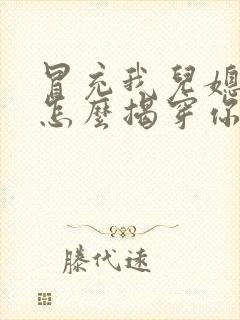 冒充我兒媳
怎麼揭穿你
滕代遠